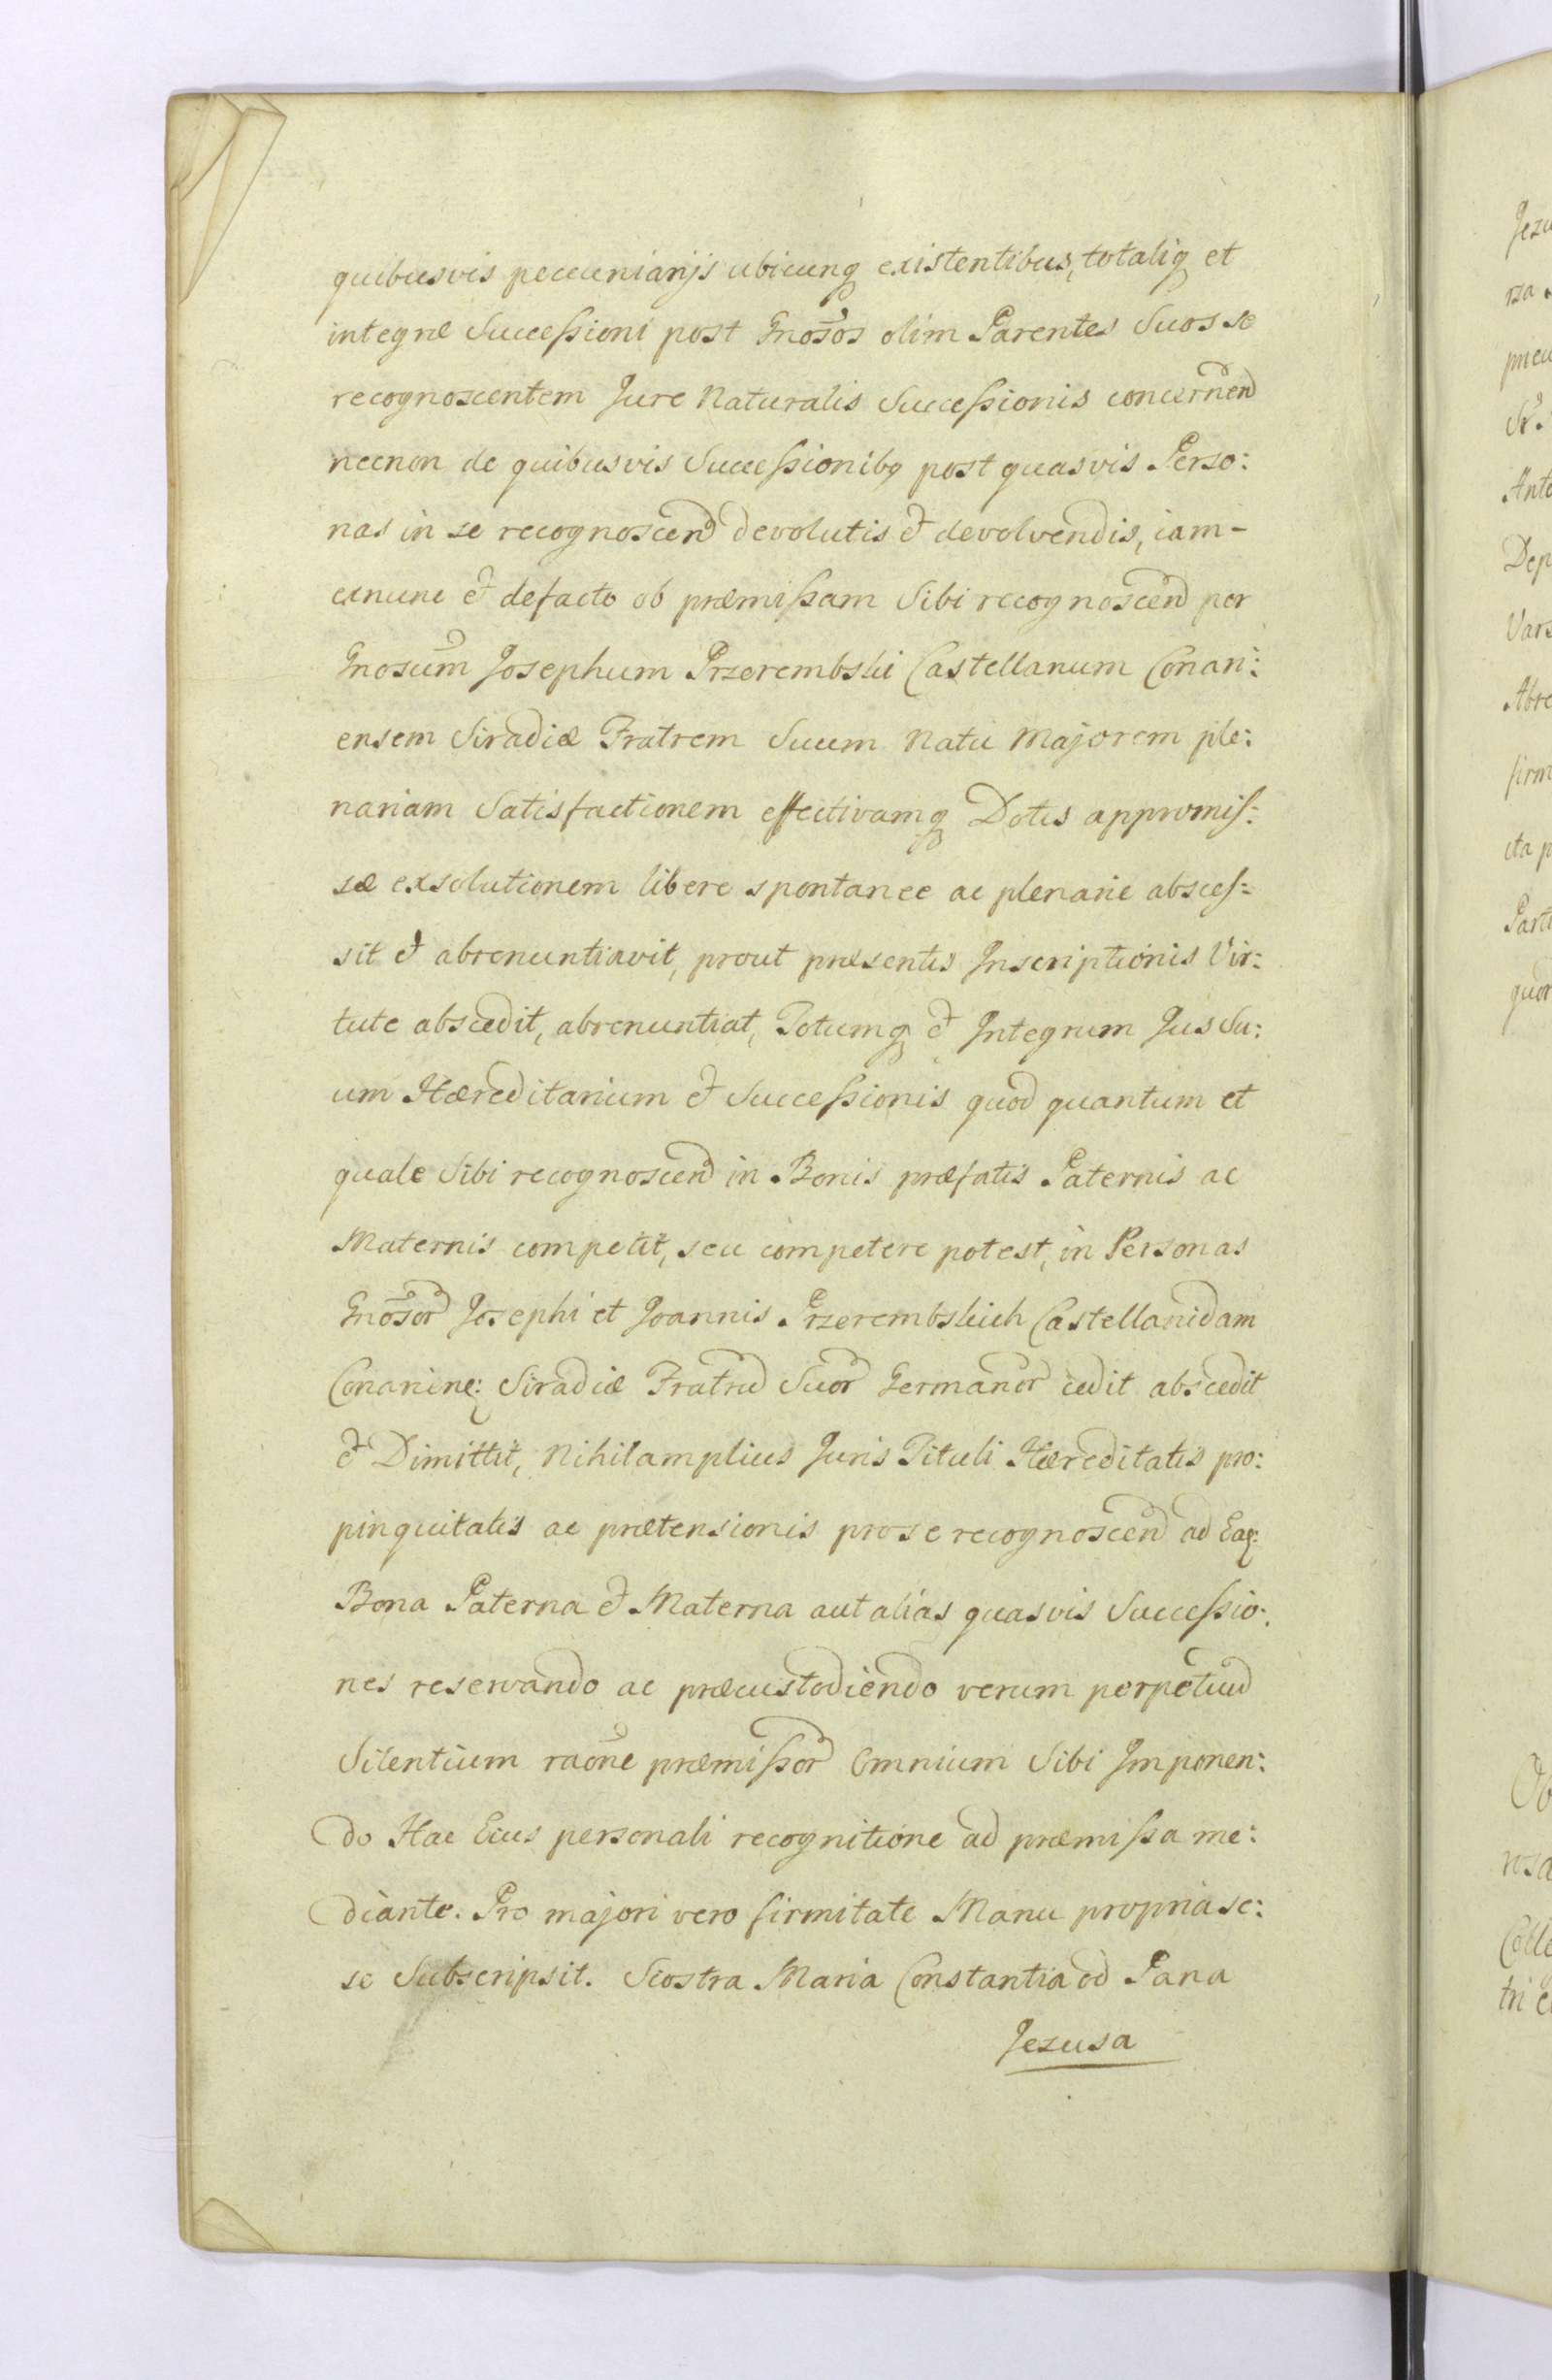 quibusvis pecuniarijs ubicunq existentibus, totaliq et
integræ Successioni post Gnosos olim Parentes Suos se
recognoscentem Jure Naturalis Successionis concernend
necnon de quibusvis Successionibq post quasvis Perso:
nas in se recognoscend devolutis & devolvendis, iam-
exnunc & defacto ob præmissam Sibi recognoscend per
Gnosum Josephum Przerembski Castellanum Conari:
ensem Siradiæ Fratrem Suum Natu Majorem ple:
nariam Satisfactionem effectivamq Dotis appromis:
sæ exsolutionem libere spontanee ac plenarie absces:
sit & abrenuntiavit, prout præsentis Inscriptionis Vir:
tute abscedit, abrenuntiat, Totumq & Integrum Jus Su:
um Hæreditarium & Successionis quod quantum et
quale Sibi recognoscend in Bonis præfatis Paternis ac
Maternis competit, seu competere potest, in Personas
Gnosor Josephi et Joannis Przerembskich Castellanidam
Conarine: Siradiæ Fratrum Suor Germanor cedit abscedit
& Dimittit, Nihil amplius Juris Tituli Hæreditatis pro:
pinquitatis ac prætensionis pro se recognoscend ad Eaq:
Bona Paterna & Materna aut alias quasvis Successio:
nes reservando ac præcustodiendo verum perpetuum
Silentium raone præmissor Omnium Sibi Imponen:
do Hac Eius personali recognitione ad præmissa me:
diante. Pro majori vero firmitate Manu propria se:
se Subscripsit. Siostra Maria Constantia od Pana
Jezusa